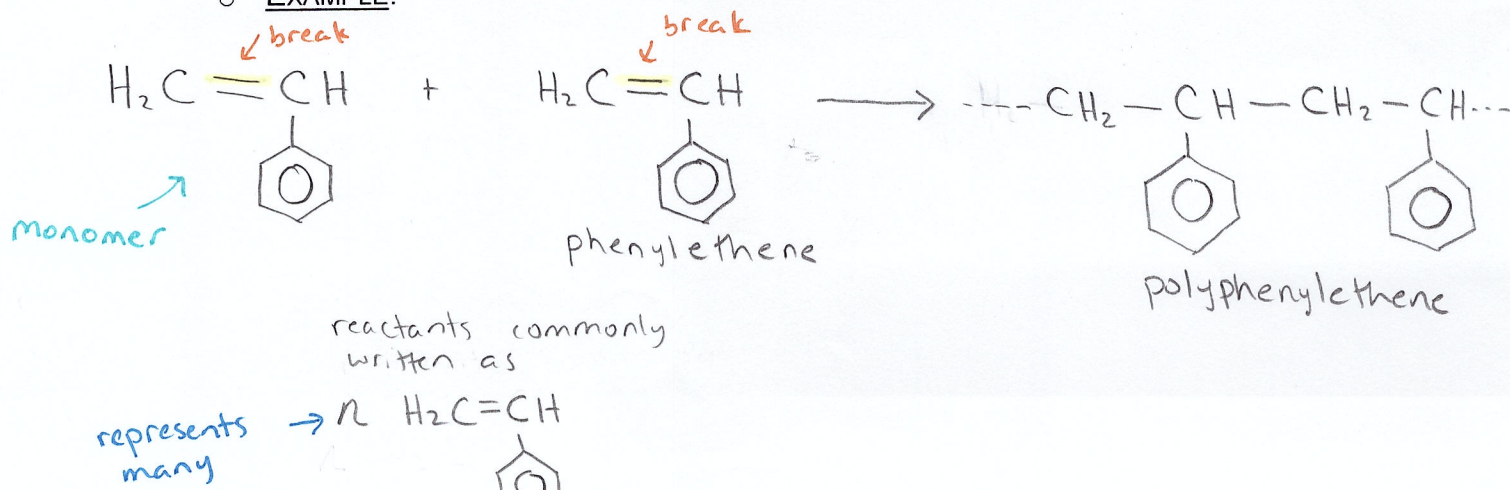 EXAMPLE:
break
break
H₂C=CH + H₂C=CH → ----CH₂—CH—CH₂—CH---
monomer
phenylethene
polyphenylethene
reactants commonly
written as
represents → n H₂C=CH
many